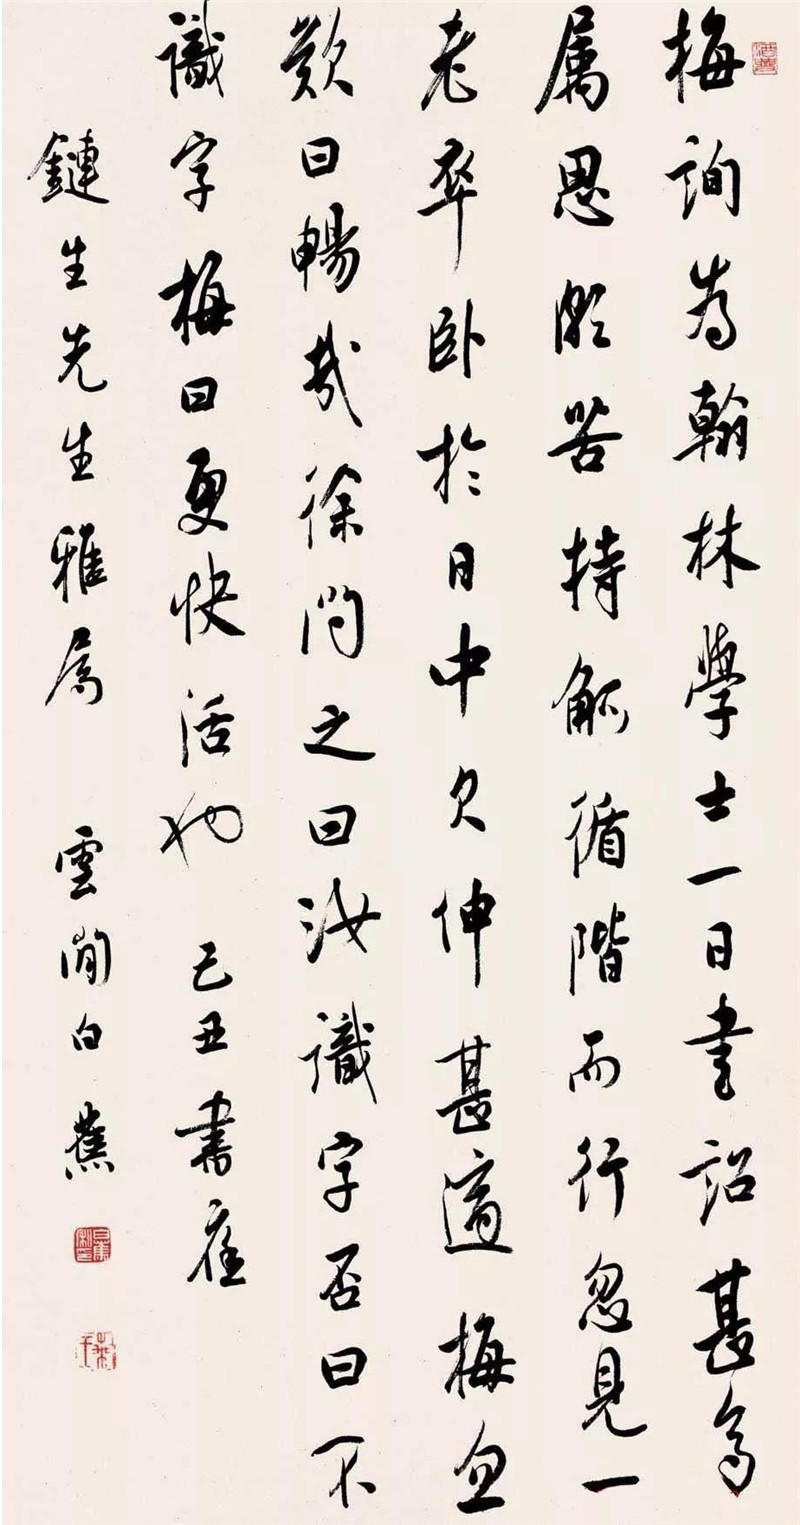 梅詢為翰林學士一日書詔甚多
属思頗苦持觚循階而行忽見一
老卒卧於日中欠伸甚適梅忽
歎曰暢哉徐問之曰汝識字否曰不
識字梅曰更快活也 己丑書應
鏈生先生雅属 雲間白蕉